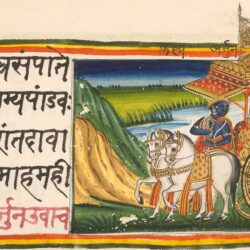 त्रसंपाते
म्यपांडवः
शंतदावा
माहमही
र्जुनउवाच